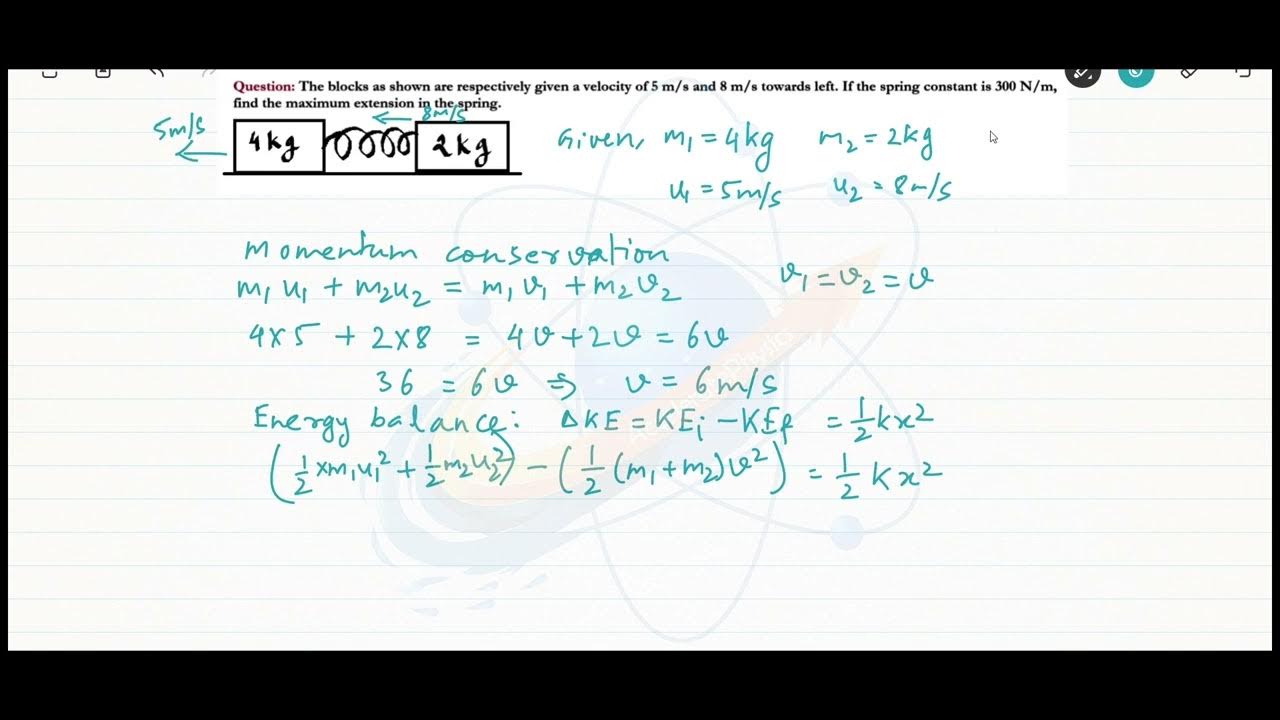 Question: The blocks as shown are respectively given a velocity of 5 m/s and 8 m/s towards left. If the spring constant is 300 N/m,
find the maximum extension in the spring.
5m/s 8m/s
4kg 2kg
Given, m₁ = 4kg m₂ = 2kg
u₁ = 5m/s u₂ = 8m/s
Momentum conservation
m₁u₁ + m₂u₂ = m₁v₁ + m₂v₂ v₁ = v₂ = v
4×5 + 2×8 = 4v + 2v = 6v
36 = 6v ⇒ v = 6m/s
Energy balance: ΔKE = KEᵢ - KE_f = 1/2 kx²
(1/2 × m₁u₁² + 1/2 m₂u₂²) - (1/2 (m₁ + m₂)v²) = 1/2 Kx²